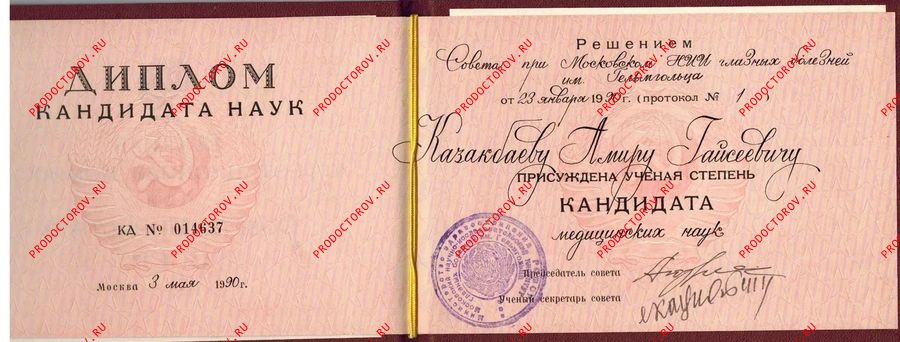 ДИПЛОМ
КАНДИДАТА НАУК
КД № 014637
Москва 3 мая 1990г.
Решением
Совета при Московском НИИ глазных болезней
им. Гельмгольца
от 23 января 1990г. (протокол № 1)
Казакбаеву Амиру Гайсеевичу
ПРИСУЖДЕНА УЧЕНАЯ СТЕПЕНЬ
КАНДИДАТА
медицинских наук
Председатель совета
Ученый секретарь совета
PRODOCTOROV.RU